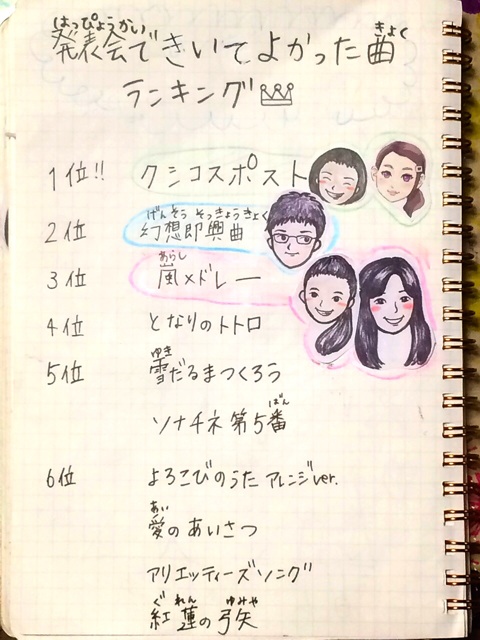 はっぴょうかい きょく
発表会できいてよかった曲
ランキング
1位!! クシコスポスト
げんそうそっきょうきょく
2位 幻想即興曲
あらし
3位 嵐メドレー
4位 となりのトトロ
ゆき
5位 雪だるまつくろう
ばん
ソナチネ 第5番
6位 よろこびのうた アレンジver.
あい
愛のあいさつ
アリエッティーズソング
ぐ れん ゆみや
紅蓮の弓矢